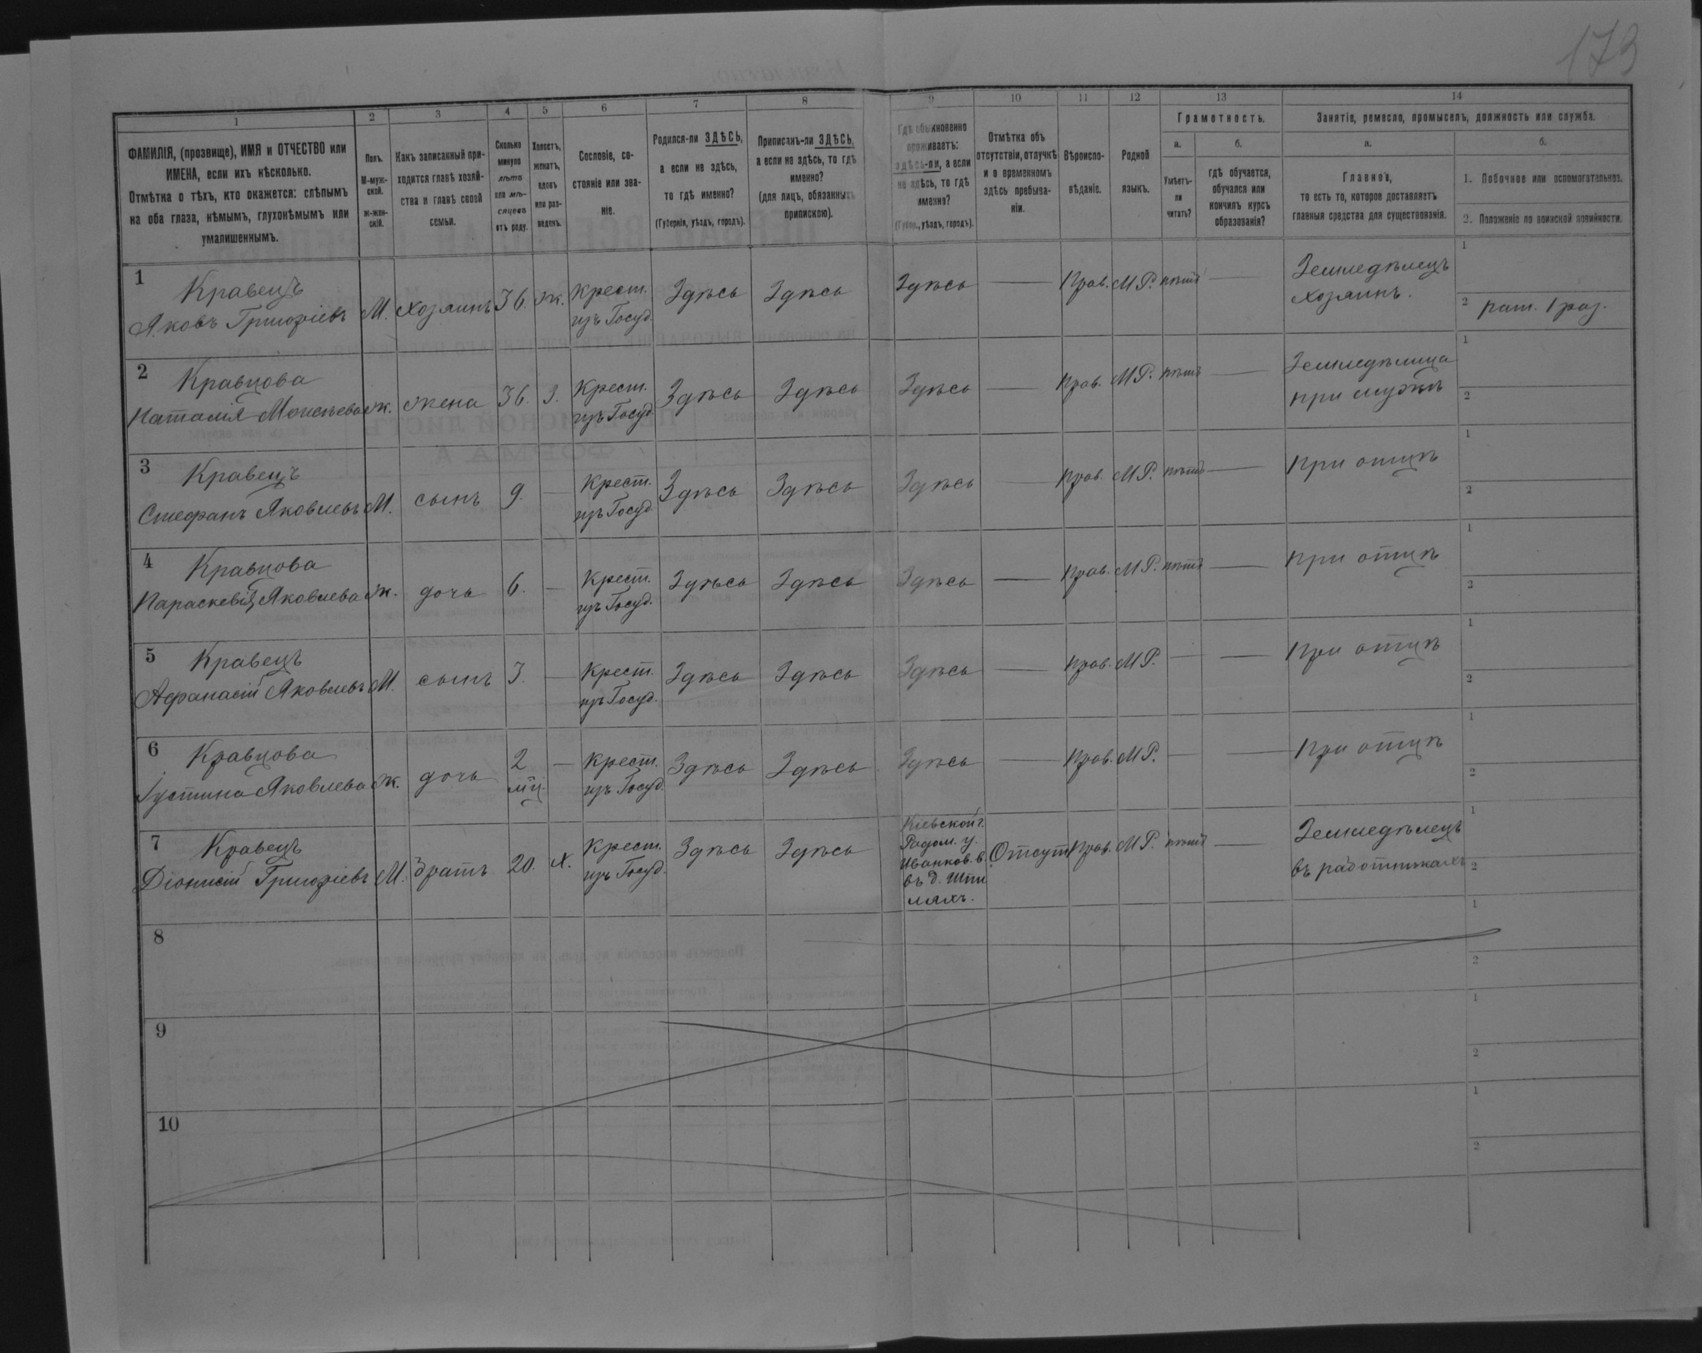 173
1
2
3
4
5
6
7
8
9
10
11
12
13
14
ФАМИЛІЯ, (прозвище), ИМЯ и ОТЧЕСТВО или
ИМЕНА, если ихъ нѣсколько.
Отмѣтка о тѣхъ, кто окажется: слѣпымъ
на оба глаза, нѣмымъ, глухонѣмымъ или
умалишеннымъ.
Полъ.
М-муж-
ской.
ж-жен-
скій.
Какъ записанный при-
ходится главѣ хозяй-
ства и главѣ своей
семьи.
Сколько
минуло
лѣтъ
или мѣ-
сяцевъ
отъ роду.
Холостъ,
женатъ,
вдовъ
или раз-
веденъ.
Сословіе, со-
стояніе или зва-
ніе.
Родился-ли ЗДѢСЬ,
а если не здѣсь,
то гдѣ именно?
(Губернія, уѣздъ, городъ).
Приписанъ-ли ЗДѢСЬ,
а если не здѣсь, то гдѣ
именно?
(для лицъ, обязанныхъ
припискою).
Гдѣ обыкновенно
проживаетъ:
здѣсь-ли, а если
не здѣсь, то гдѣ
именно?
(Губерн., уѣздъ, городъ).
Отмѣтка объ
отсутствіи, отлучкѣ
и о временномъ
здѣсь пребыва-
ніи.
Вѣроиспо-
вѣданіе.
Родной
языкъ.
Грамотность.
а.
Умѣетъ-
ли
читать?
б.
гдѣ обучается,
обучался или
кончилъ курсъ
образованія?
Занятіе, ремесло, промыселъ, должность или служба.
а.
Главное,
то есть то, которое доставляетъ
главныя средства для существованія.
б.
1. Побочное или вспомогательное.
2. Положеніе по воинской повинности.
1
Кравецъ
Яковъ Григоріевъ
М. хозяинъ 36. ж. Крест.
изъ Госуд.
Здѣсь Здѣсь Здѣсь — Прав. М.Р. нѣтъ —
Земледѣлецъ
хозяинъ.
1
2 рат. 1 раз.
2
Кравцова
Наталія Моисѣева
ж. жена 36. З. Крест.
изъ Госуд.
Здѣсь Здѣсь Здѣсь — Прав. М.Р. нѣтъ —
Земледѣлица
при мужѣ
1
2
3
Кравецъ
Стефанъ Яковлевъ
М. сынъ 9. — Крест.
изъ Госуд.
Здѣсь Здѣсь Здѣсь — Прав. М.Р. нѣтъ —
При отцѣ
1
2
4
Кравцова
Параскевія Яковлева
ж. дочь 6. — Крест.
изъ Госуд.
Здѣсь Здѣсь Здѣсь — Прав. М.Р. нѣтъ —
При отцѣ
1
2
5
Кравецъ
Афанасій Яковлевъ
М. сынъ 3. — Крест.
изъ Госуд.
Здѣсь Здѣсь Здѣсь — Прав. М.Р. — —
При отцѣ
1
2
6
Кравцова
Іустина Яковлева
ж. дочь 2
мц. — Крест.
изъ Госуд.
Здѣсь Здѣсь Здѣсь — Прав. М.Р. — —
При отцѣ
1
2
7
Кравецъ
Діонисій Григоріевъ
М. братъ 20. х. Крест.
изъ Госуд.
Здѣсь Здѣсь
Кіевской г.
Радом. у.
Иванков. в.
въ д. Шпи
ляхъ.
Отсут. Прав. М.Р. нѣтъ —
Земледѣлецъ
въ работникахъ
1
2
8
1
2
9
1
2
10
1
2